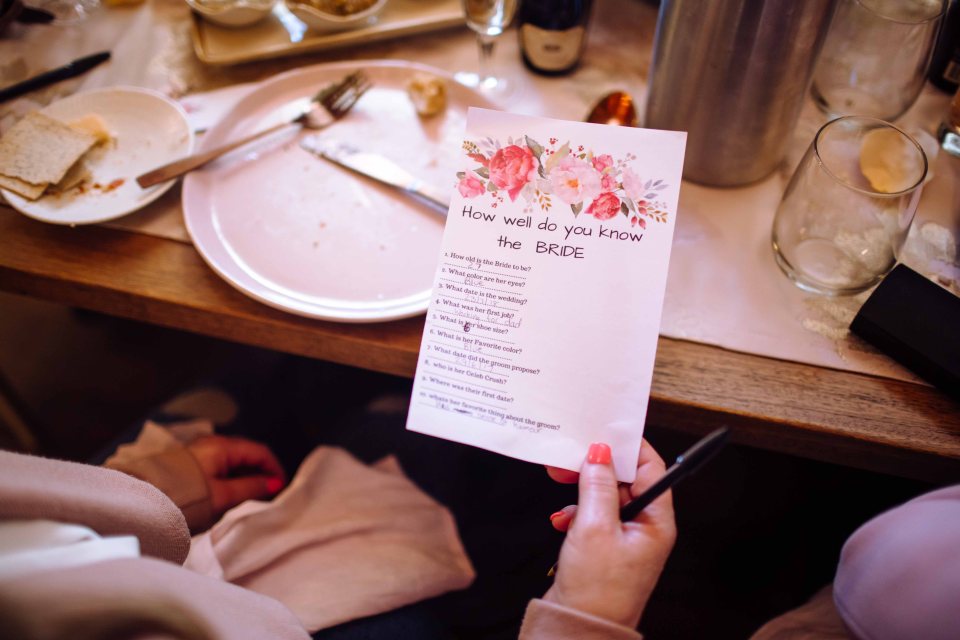 How well do you know
the BRIDE
1. How old is the Bride to be?
27
2. What color are her eyes?
Blue
3. What date is the wedding?
4. What was her first job?
working for dad
5. What is her shoe size?
6. What is her Favorite color?
Blue
7. What date did the groom propose?
8. who is her Celeb Crush?
9. Where was their first date?
10. whats her favorite thing about the groom?
sense of humour